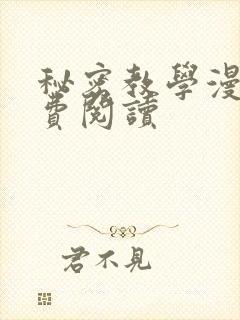 秘密教學漫
費閱讀
君不見